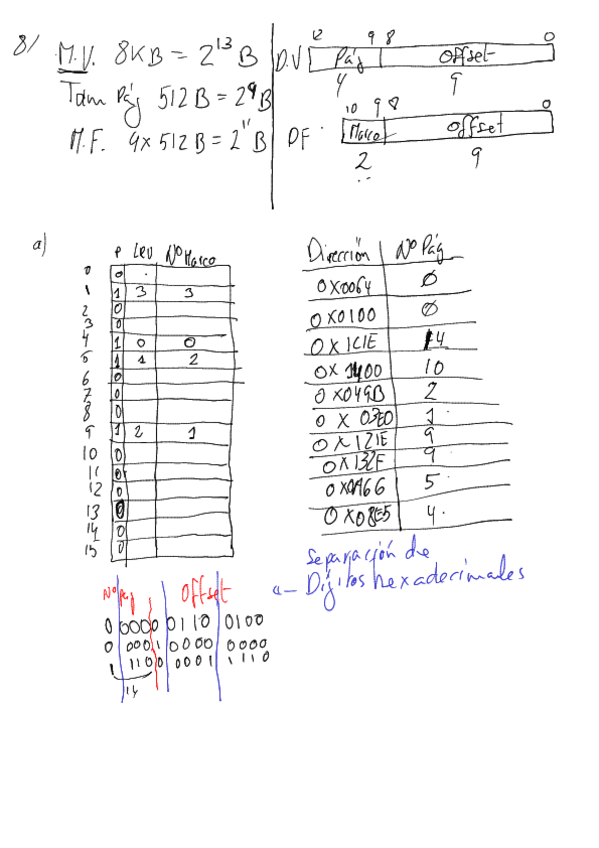 8/ M.V. 8KB = 2^13 B
Tam Pág 512 B = 2^9 B
M.F. 4x 512 B = 2^11 B
D.V
12 9 8 0
Pág offset
4 9
DF
10 9 8 0
Marco offset
2 9
a)
P LRU Nº Marco
0 0
1 1 3 3
2 0
3 0
4 1 0 0
5 1 1 2
6 0
7 0
8 0
9 1 2 1
10 0
11 0
12 0
13 0
14 0
15 0
Dirección Nº Pág
0x0064 0
0x0100 0
0x1C1E 14
0x1400 10
0x049B 2
0x03E0 1
0x121E 9
0x132F 9
0x0A66 5
0x08E5 4
Nº Pág Offset
0 0000 0110 0100
0 0001 0000 0000
1 1100 0001 1110
14
Separación de
Dígitos hexadecimales